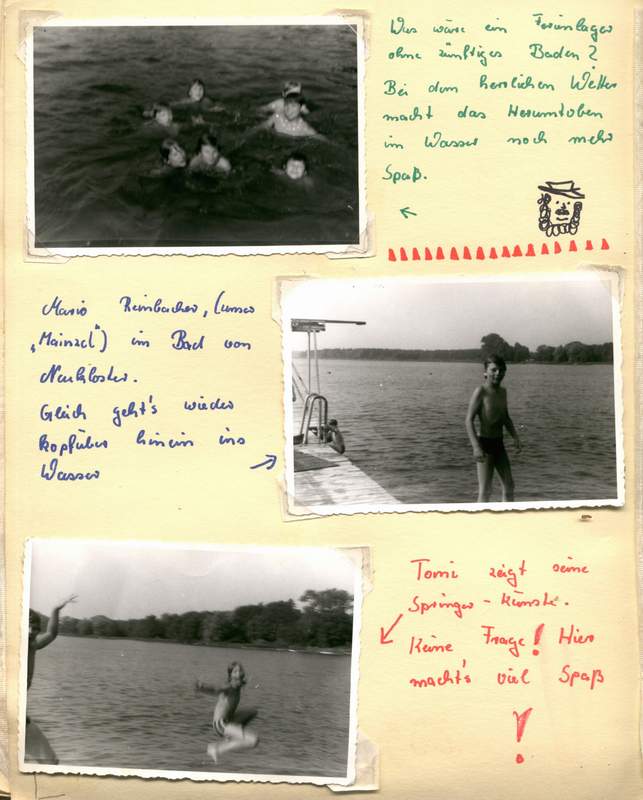 Was wäre ein Ferienlager
ohne zünftiges Baden?
Bei dem herrlichen Wetter
macht das Herumtoben
im Wasser noch mehr
Spaß.
Mario Reinbacher, (unser
„Mainzel") im Bad von
Neukloster.
Gleich geht's wieder
kopfüber hinein ins
Wasser
Tomi zeigt seine
Springer-künste.
Keine Frage! Hier
macht's viel Spaß
!